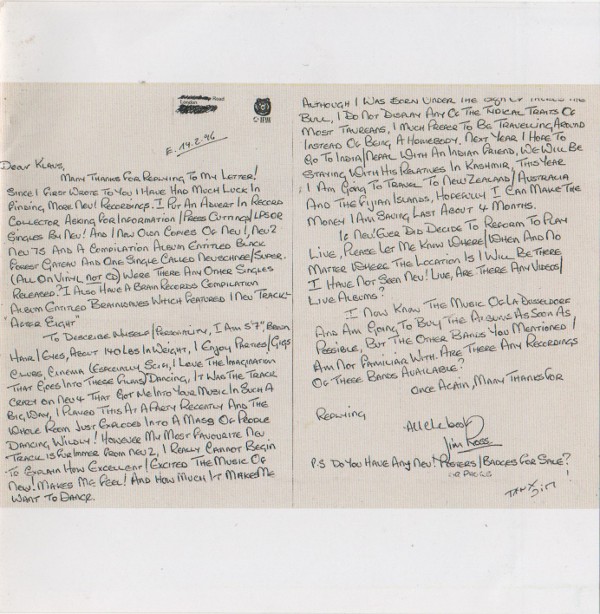 Road
London
E. 14.2.96
Dear Klaus,
Many Thanks For Replying To My Letter!
Since I First Wrote To You I Have Had Much Luck In
Finding More Neu! Recordings. I Put An Advert In Record
Collector Asking For Information/Press Cutting/LPS Or
Singles By Neu! And I Now Own Copies Of Neu!, Neu 2
Neu '75 And A Compilation Album Entitled Black
Forest Gateau And One Single Called Neuschnee/Super.
(All On Vinyl Not CD) Were There Any Other Singles
Released? I Also Have A Brain Records Compilation
Album Entitled Brainwaves Which Featured 1 Neu Track-
"After Eight"
To Describe Myself/Personality, I Am 5'7", Brown
Hair/Eyes, About 140 Lbs In Weight, I Enjoy Parties/Gigs
Clubs, Cinema (Especially Sci Fi, I Love The Imagination
That Goes Into These Films) Dancing, It Was The Track
Crazy On Neu 4 That Got Me Into Your Music In Such A
Big Way, I Played This At A Party Recently And The
Whole Room Just Exploded Into A Mass Of People
Dancing, Wildly! However My Most Favourite Neu
Track Is Für Immer From Neu 2, I Really Cannot Begin
To Explain How Excellent/Excited The Music Of
Neu! Makes Me Feel! And How Much It Makes Me
Want To Dance.
Although I Was Born Under The Sign Of The
Bull, I Do Not Display Any Of The Typical Traits Of
Most Taureans, I Much Prefer To Be Travelling Around
Instead Of Being A Homebody. Next Year I Hope To
Go To India/Nepal With An Indian Friend, We Will Be
Staying With His Relatives In Kashmir, This Year
I Am Going To Travel To New Zealand/Australia
And The Fijian Islands, Hopefully I Can Make The
Money I Am Saving Last About 4 Months.
If Neu! Ever Did Decide To Reform To Play
Live, Please Let Me Know Where/When And No
Matter Where The Location Is I Will Be There
I Have Not Seen Neu! Live, Are There Any Videos/
Live Albums?
I Now Know The Music Of La Dusseldorf
And Am Going To Buy The Albums As Soon As
Possible, But The Other Bands You Mentioned I
Am Not Familiar With. Are There Any Recordings
Of These Bands Available?
Once Again, Many Thanks For
Replying
All The Best
Jim Ross
P.S Do You Have Any Neu! Posters/Badges For Sale?